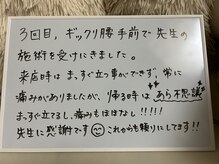 3回目，ギックリ腰手前で先生の
施術を受けにきました。
来店時はまっすぐ立つ事ができず，常に
痛みがありましたが，帰る時は"あら不思議"
まっすぐ立てるし，痛みもほぼなし!!!!
先生に感謝です これからも頼りにしてます!!